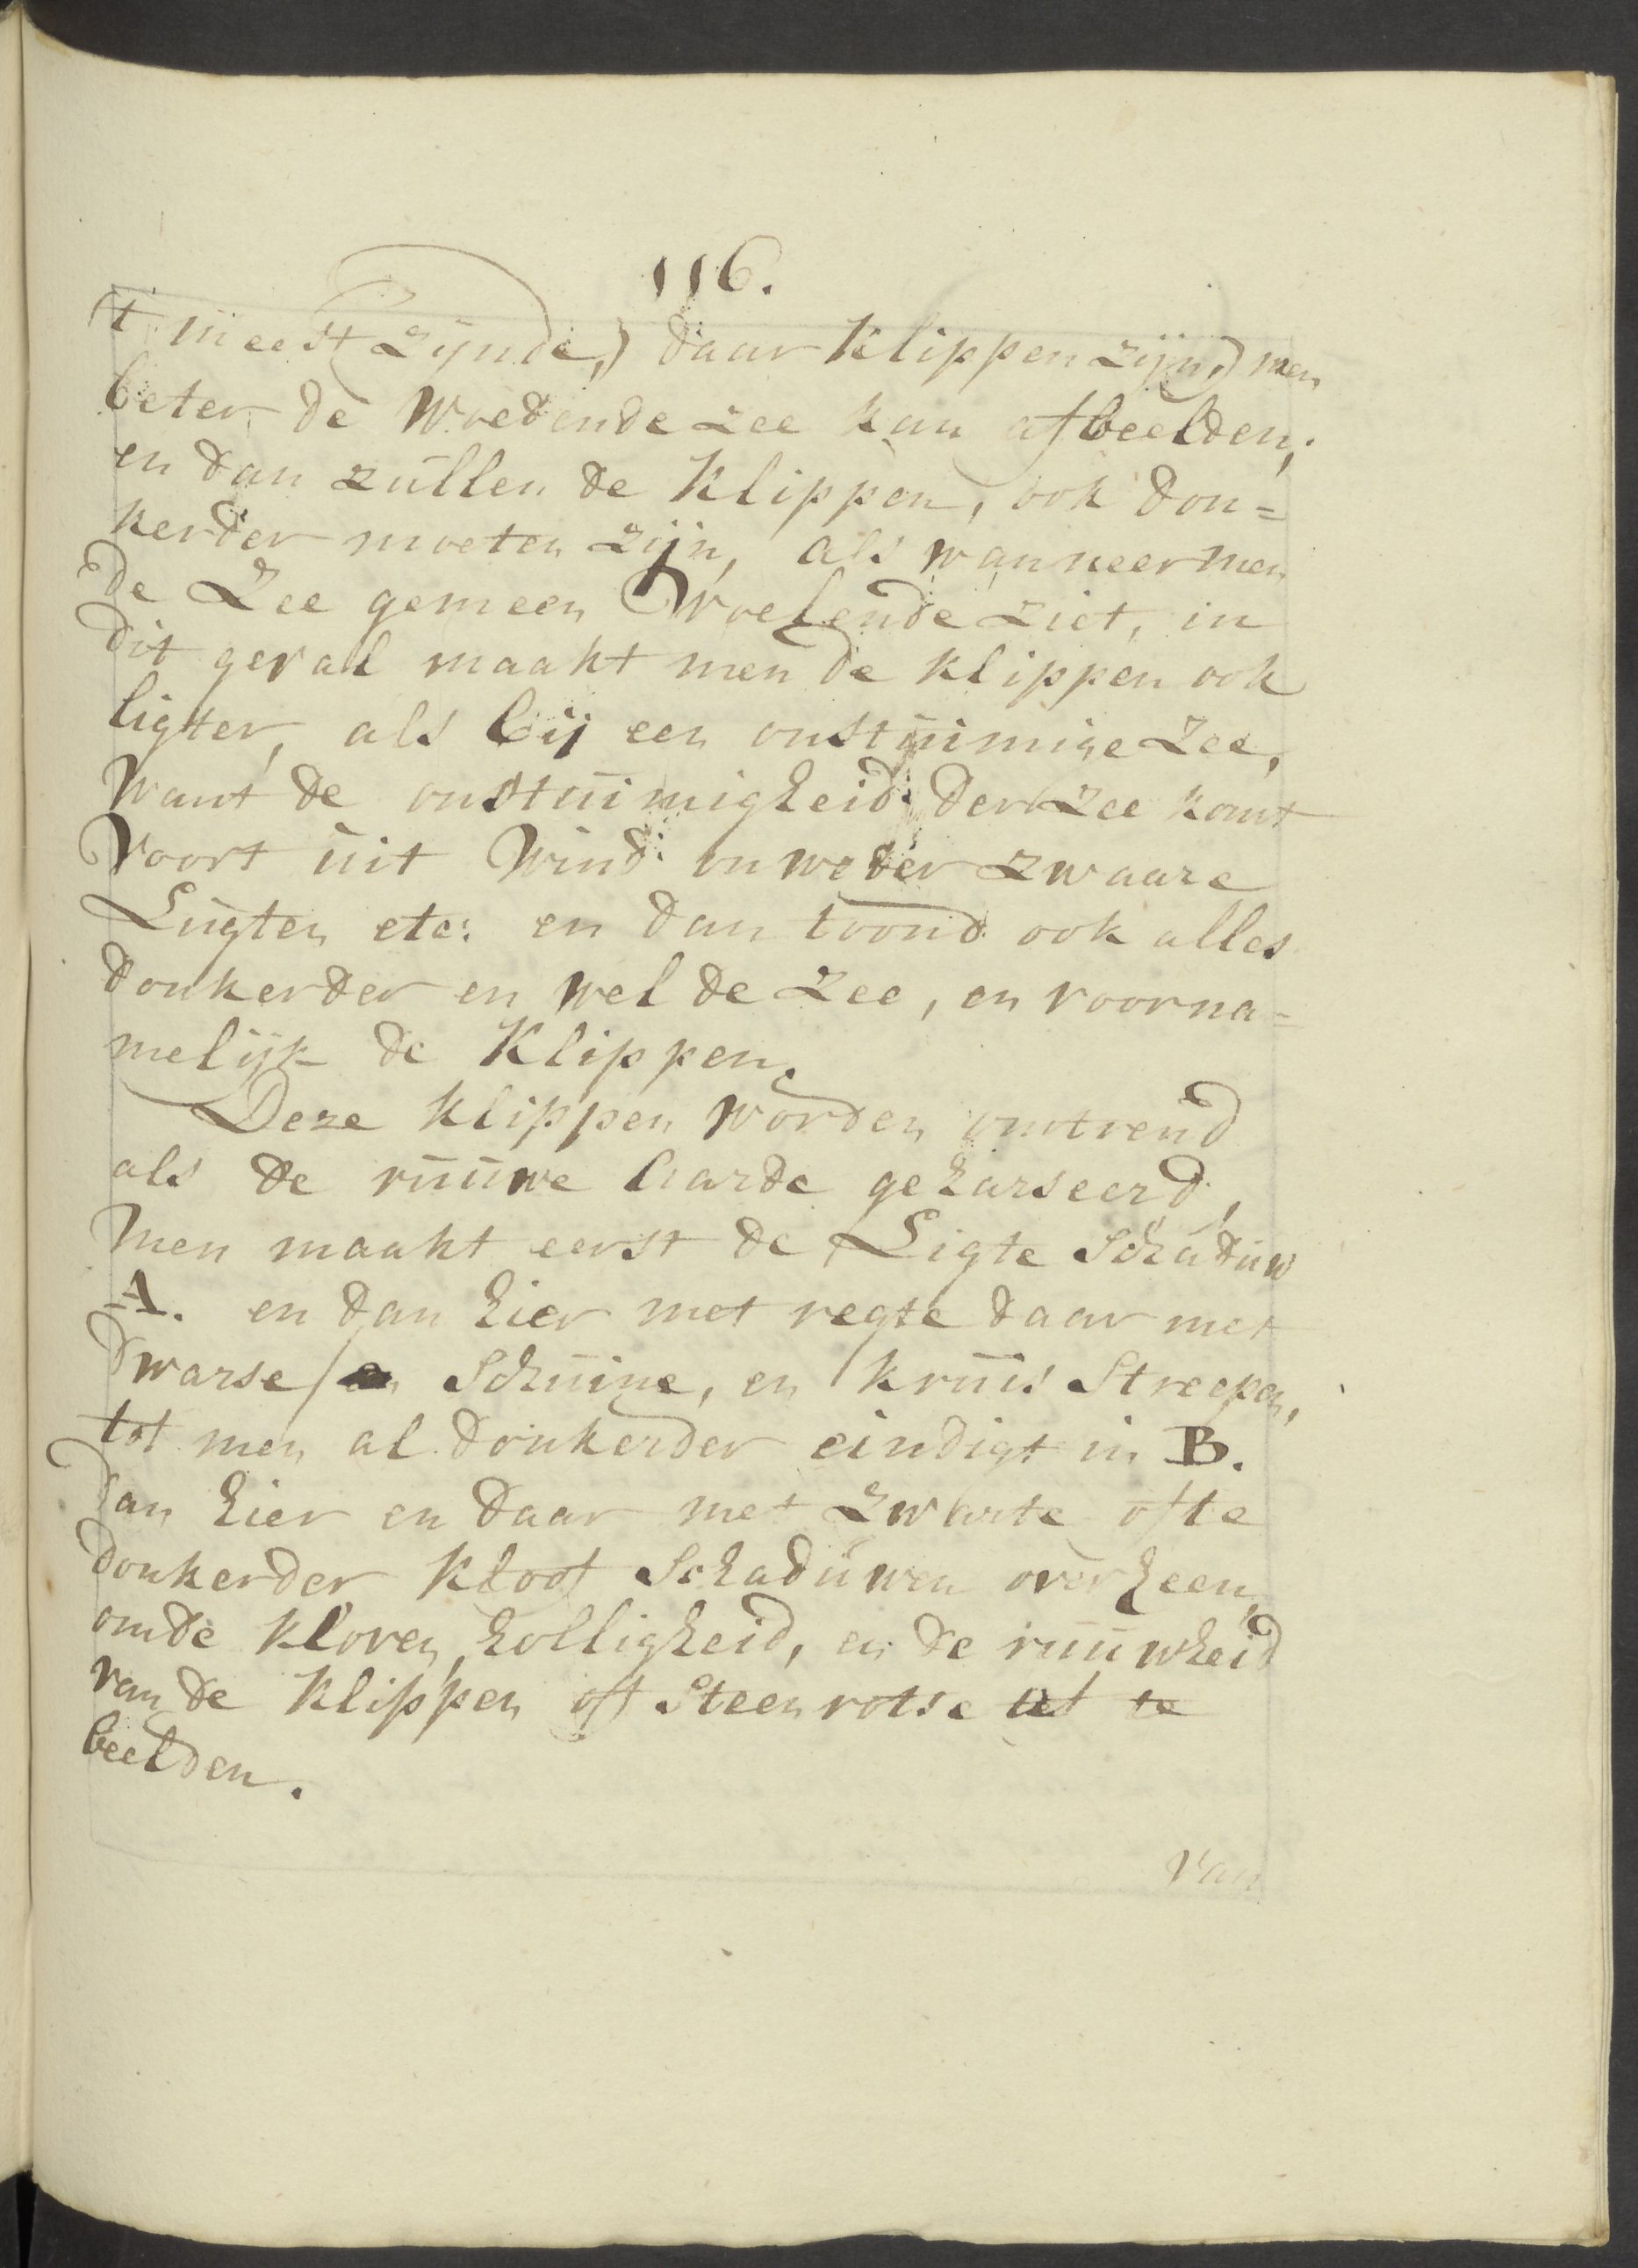 116.
(t meest zijnde,) daar klippen zijn,) men
beter de Woedende zee kan afbeelden;
en dan zullen de Klippen, ook don=
kerder moeten zijn, als wanneer men
de Zee gemeen Woelende ziet, in
dit geval maakt men de klippen ook
ligter, als bij een onstuimige Zee,
Want de onstuimigheid der Zee komt
Voort uit Wind onweder zwaare
Lugten etc: en dan toond ook alles
donkerder en wel de Zee, en voorna=
melijk de Klippen.
Deze klippen worden omtrend
als de ruuwe Aarde geharseerd,
Men maakt eerst de Ligte Schaduw
A. en dan hier met regte daar met
dwarse, en Schuine, en kruis Streepen,
tot men al donkerder eindigt in B.
dan hier en daar met zwarte ofte
donkerder kloof Schaduwen overheen,
om de kloven, holligheid, en de ruuwheid
van de Klippen of Steenrotse af te
beelden.
Van